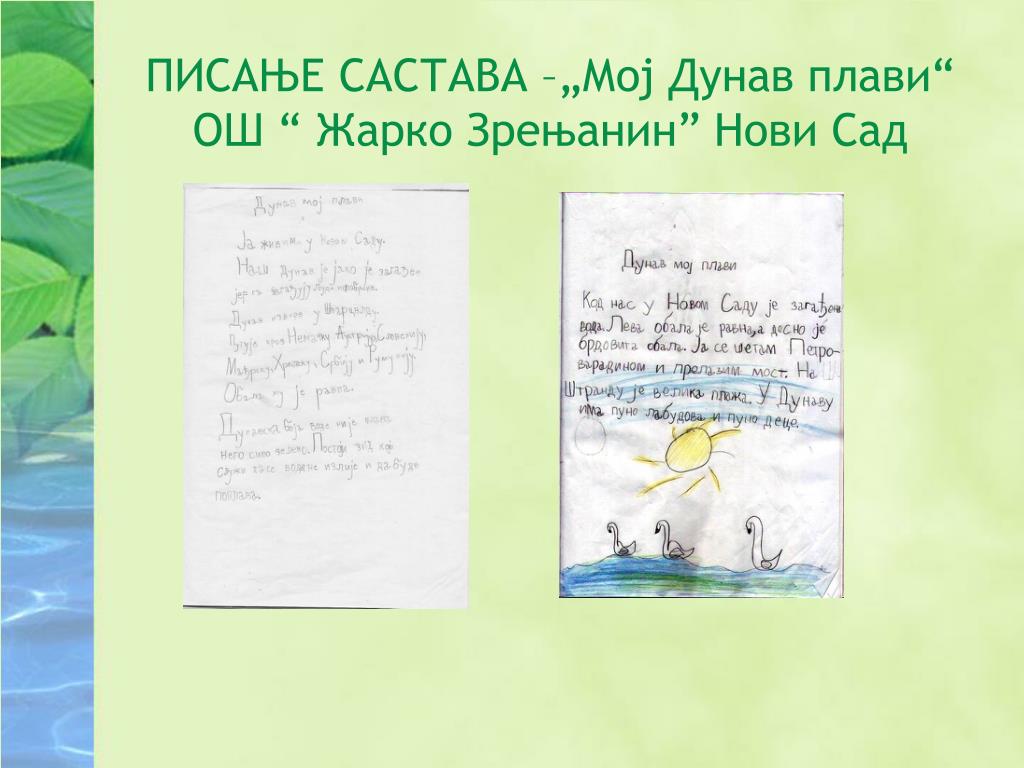 ПИСАЊЕ САСТАВА –„Мој Дунав плави“
ОШ “ Жарко Зрењанин” Нови Сад
Дунав мој плави
Ја живим у Новом Саду.
Наш Дунав је јако је загађен
јер га загађују
Дунав извире у
Путује кроз Немачку Словенију,
Мађарску, Србију и Румунију
Обала му је равна.
Дунавска боја воде није плава
него сиво зелено. Постоји зид који
служи да се вода не излије и да буде
поплава.
Дунав мој плави
Код нас у Новом Саду је загађена
вода. Лева обала је равна, а десно је
брдовита обала. Ја се шетам Петро-
варадином и прелазим мост. На
Штранду је велика плажа. У Дунаву
има пуно лабудова и пуно деце.